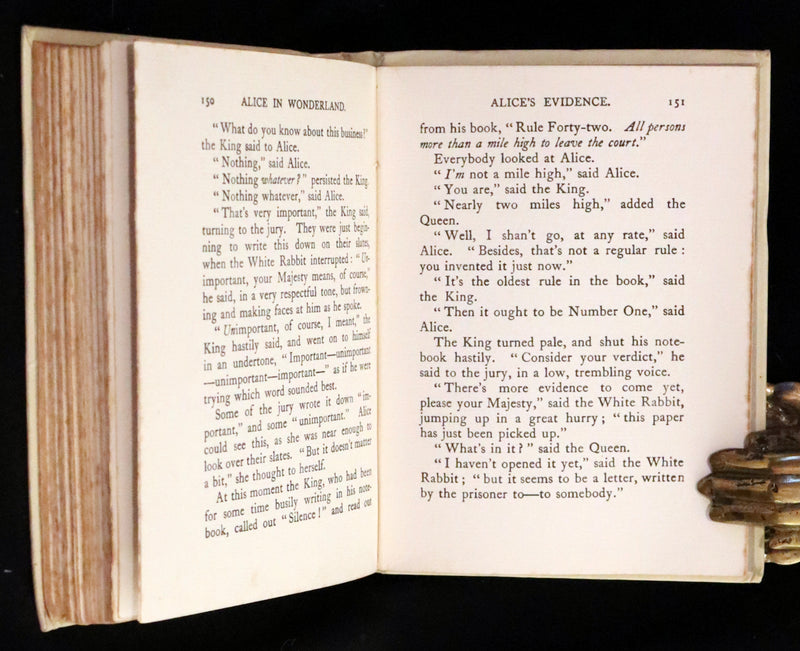 150 ALICE IN WONDERLAND.
“What do you know about this business?”
the King said to Alice.
“Nothing,” said Alice.
“Nothing whatever?” persisted the King.
“Nothing whatever,” said Alice.
“That's very important,” the King said,
turning to the jury. They were just begin-
ning to write this down on their slates,
when the White Rabbit interrupted: “Un-
important, your Majesty means, of course,”
he said, in a very respectful tone, but frown-
ing and making faces at him as he spoke.
“Unimportant, of course, I meant,” the
King hastily said, and went on to himself
in an undertone, “Important—unimportant
—unimportant—important—” as if he were
trying which word sounded best.
Some of the jury wrote it down “im-
portant,” and some “unimportant.” Alice
could see this, as she was near enough to
look over their slates. “But it doesn't matter
a bit,” she thought to herself.
At this moment the King, who had been
for some time busily writing in his note-
book, called out “Silence!” and read out
ALICE'S EVIDENCE. 151
from his book, “Rule Forty-two. All persons
more than a mile high to leave the court.”
Everybody looked at Alice.
“I'm not a mile high,” said Alice.
“You are,” said the King.
“Nearly two miles high,” added the
Queen.
“Well, I shan't go, at any rate,” said
Alice. “Besides, that's not a regular rule:
you invented it just now.”
“It's the oldest rule in the book,” said
the King.
“Then it ought to be Number One,” said
Alice.
The King turned pale, and shut his note-
book hastily. “Consider your verdict,” he
said to the jury, in a low, trembling voice.
“There's more evidence to come yet,
please your Majesty,” said the White Rabbit,
jumping up in a great hurry; “this paper
has just been picked up.”
“What's in it?” said the Queen.
“I haven't opened it yet,” said the White
Rabbit; “but it seems to be a letter, written
by the prisoner to—to somebody.”